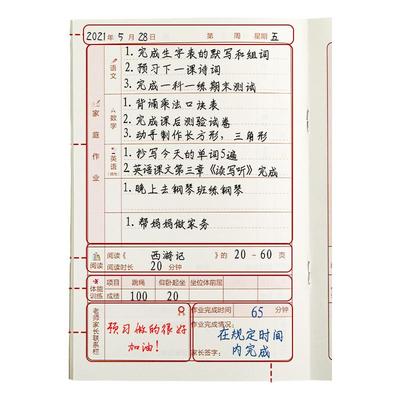 2021年 5月 28日 第 周 星期 五
家庭作业
语文
1. 完成生字表的默写和组词
2. 预习下一课诗词
3. 完成一科一练期末测试
数学
1. 背诵乘法口诀表
2. 完成课后测验试卷
3. 动手制作长方形，三角形
英语
1. 抄写今天的单词5遍
2. 英语课文第三章《读写听》完成
1. 晚上去钢琴班练钢琴
1. 帮妈妈做家务
阅读 阅读《 西游记 》的 20-60 页
阅读时长 20 分钟
体能训练 项目 跳绳 仰卧起坐 坐位体前屈
成绩 100 20
老师家长联系栏
预习做的很好
加油！
作业完成时间 65 分钟
作业完成情况:
在规定时间
内完成
家长签字: